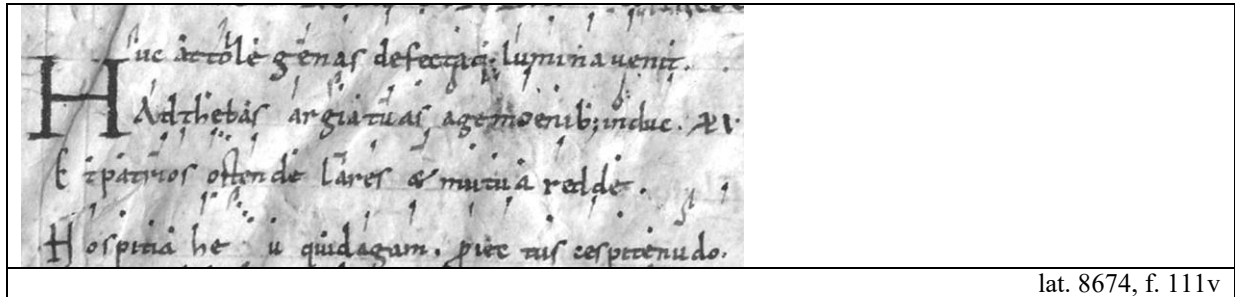 Huc attole genas defectaq; lumina uenit.
Ad thebas argia tuas age moenib; induc. XV
Et patrios ostende lares & mutua redde.
Hospitia he u quid agam. piec tus cespite nudo.
lat. 8674, f. 111v